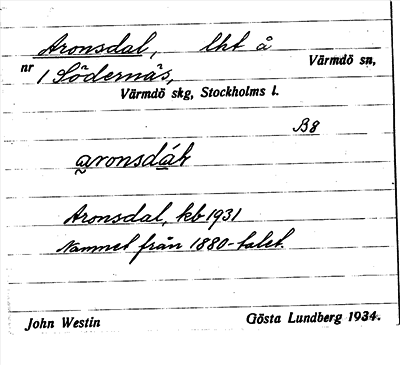 Aronsdal, lht å Värmdö sn,
nr 1 Södernäs,
Värmdö skg, Stockholms l.
B8
Aronsdal, kb 1931
Namnet från 1880-talet.
John Westin Gösta Lundberg 1934.